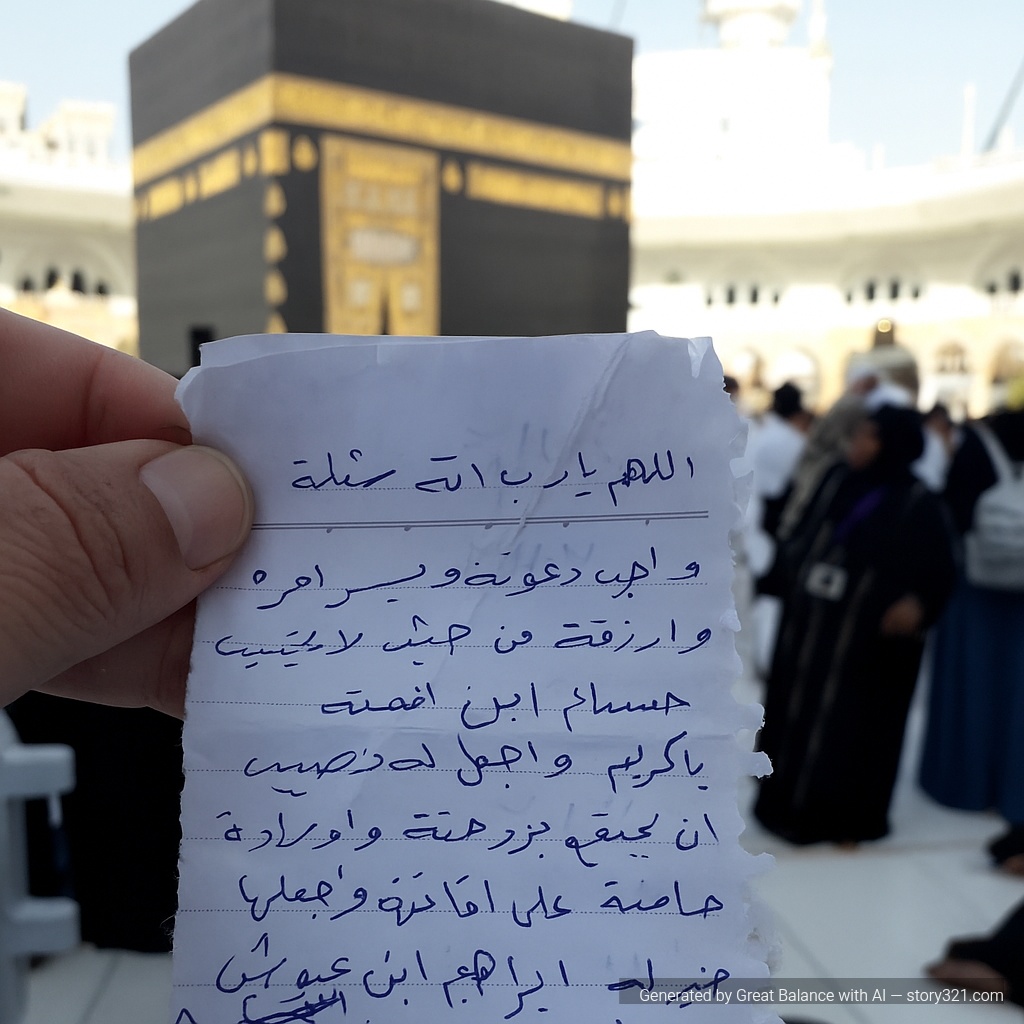 اللهم يارب اته سئلة
و اجب دعوته و يسر امره
و ارزقة من حيث لا يحتسب
حسام ابن
ياكريم و اجعل له نصيب
ان يجتمع بزوجتة واولادة
على و اجعلها
خير له ابراهيم ابن
Generated by Great Balance with AI – story321.com